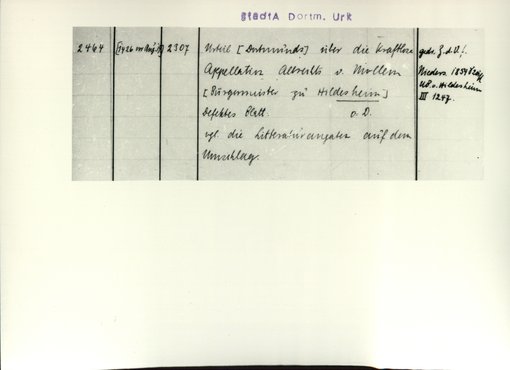 StadtA Dortm. Urk
2464
[1426 m Aug. 1]
2307
Urteil [Dortmunds] über die Kraftlose
Appellation Albrechts v. Mollem
[Bürgermeister zu Hildesheim]
defektes Blatt. o. D.
vgl. die Litteraturangaben auf dem
Umschlag.
gedr. Z.d.V.!
Niedersa. 1854
UB. v. Hildesheim
III 1247.